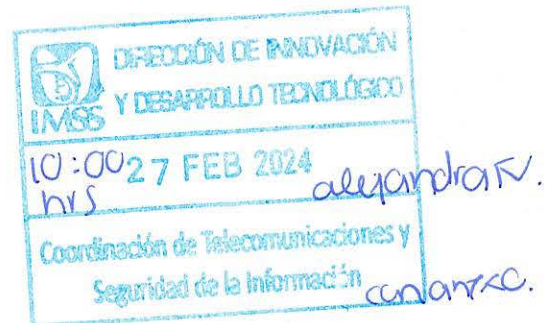 DIRECCIÓN DE INNOVACIÓN
Y DESARROLLO TECNOLÓGICO
IMSS
10:00 27 FEB 2024
hrs
alejandra
Coordinación de Telecomunicaciones y
Seguridad de la Información
con anexo.